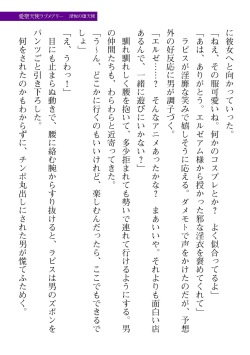 愛聖天使ラブメアリー　淫惨の堕天使
に彼女へと向かっていった。
「ねえ、その服可愛いね。何かのコスプレとか？　よく似合ってるよ」
「あは、ありがとう。エルゼアム様から授かった邪な淫衣を褒めてくれて」
ラピスが淫靡な笑みで嬉しそうに応える。ダメモトで声をかけたのだが、予想
外の好反応に男が調子づく。
「エルゼ……？　そんなアニメあったかな？　まあいいや。それよりも面白い店
あるんで、一緒に飲みにいかない？」
馴れ馴れしく腰を抱いて、多少拒まれても勢いで連れて行けるようにする。男
の仲間たちも、わらわらと近寄ってきた。
「うーん、どこかに行くのもいいけれど、楽しむんだったら、ここでもできるで
しょ」
「え、うわっ！」
目にも止まらぬ動きで、腰に絡む腕からすり抜けると、ラピスは男のズボンを
パンツごと引き下ろした。
何をされたのかもわからずに、チンポ丸出しにされた男が慌てふためく。